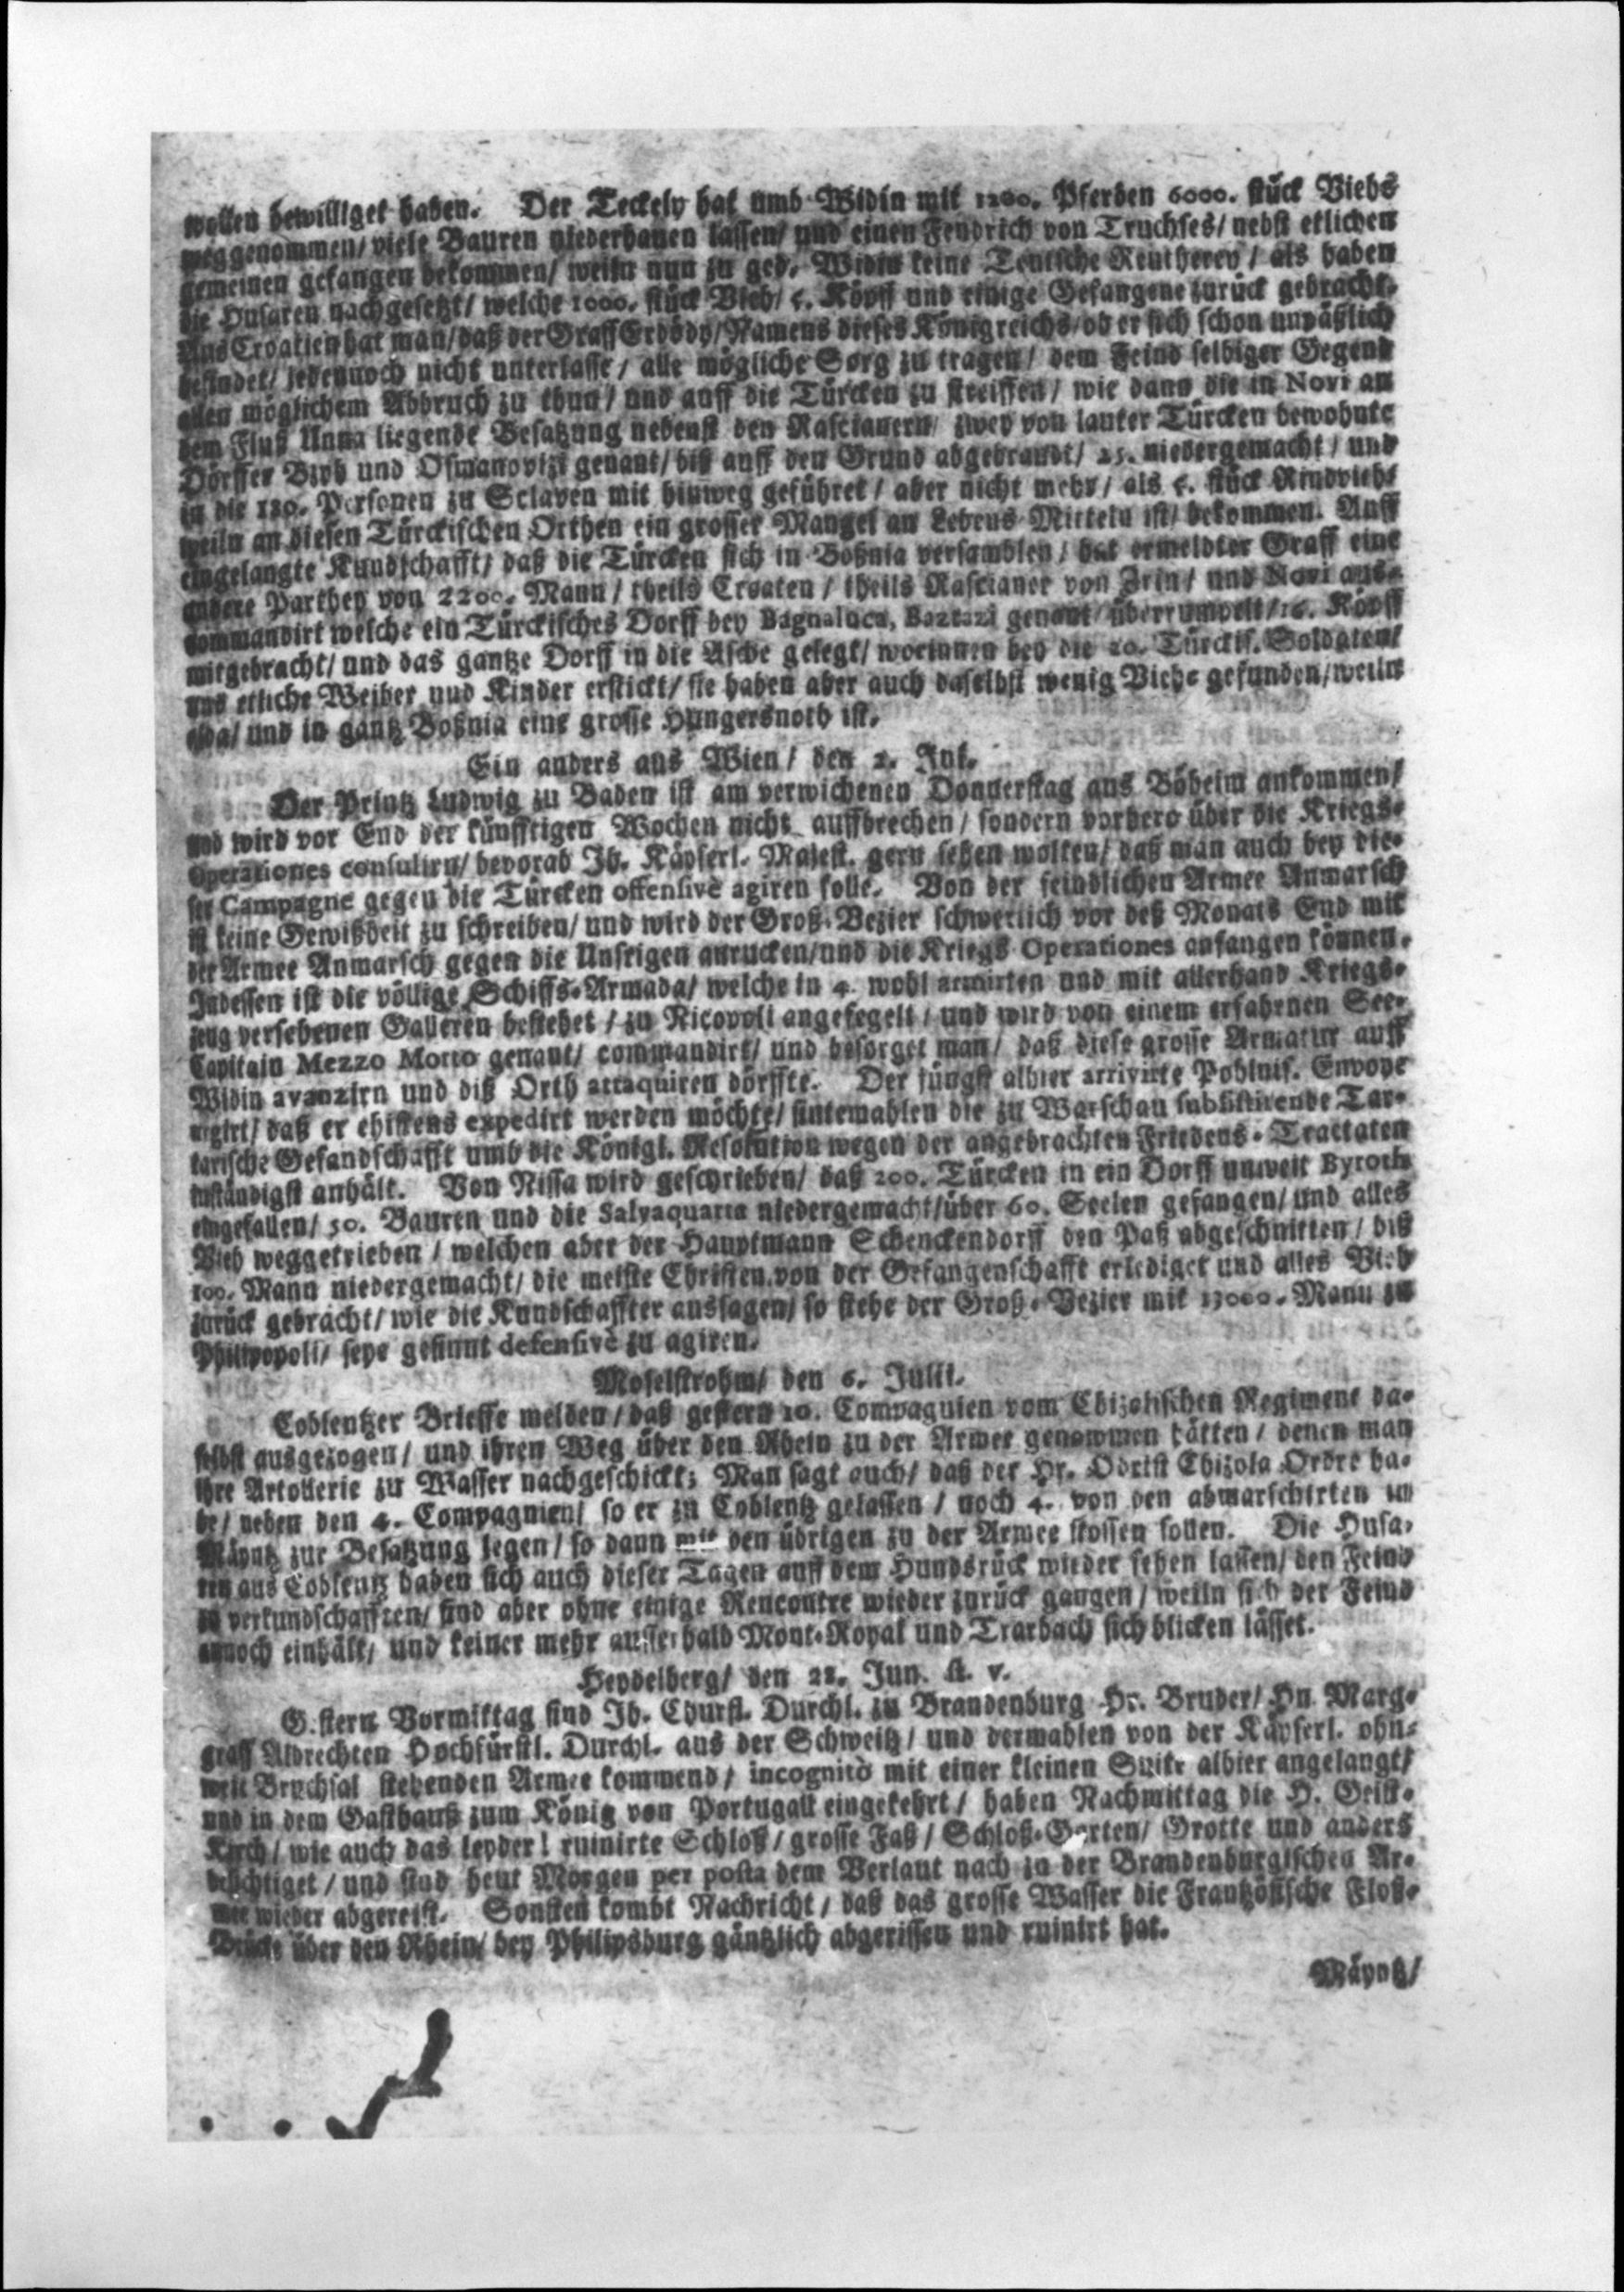 wollen bewilliget haben. Der Teckely hat umb Widin mit 1200. Pferden 6000. stück Viehs
weggenommen/ viele Bauren niederhauen lassen/ und einen Fendrich von Truchses/ nebst etlichen
gemeinen gefangen bekommen/ weiln nun zu ged. Widin keine Teutsche Reutherey / als haben
die Husaren nachgesetzt/ welche 1000. stück Vieh/ 5. Köpff und einige Gefangene zurück gebracht.
Aus Croatien hat man/ daß der Graff Erdödy/ Namens dieses Königreichs/ ob er sich schon unpäßlich
befindet/ jedennoch nicht unterlasse / alle mögliche Sorg zu tragen/ dem Feind selbiger Gegend
allen möglichem Abbruch zu thun/ und auff die Türcken zu streiffen / wie dann die in Novi an
dem Fluß Unna liegende Besatzung nebenst den Rascianern/ zwey von lauter Türcken bewohnte
Dörffer und Osmanovizi genant/ biß auff den Grund abgebrandt/ 25. niedergemacht / und
in die 130. Personen zu Sclaven mit hinweg geführet / aber nicht mehr / als 5. stück Rindviehs
weiln an diesen Türckischen Orthen ein grosser Mangel an Lebens-Mitteln ist/ bekommen. Auff
eingelangte Kundschafft/ daß die Türcken sich in Boßnia versamblen / hat ermeldter Graff eine
andere Parthey von 2200. Mann / theils Croaten / theils Rascianer von Zrin/ und Novi aus-
commandirt welche ein Türckisches Dorff bey Bagnaluca, Baztazi genant/ überrumpelt/ 16. Köpff
mitgebracht/ und das gantze Dorff in die Asche gelegt/ worinnen bey die 20. Türckis. Soldaten/
und etliche Weiber und Kinder erstickt/ sie haben aber auch daselbst wenig Viehe gefunden/ weiln
alda/ und in gantz Boßnia eine grosse Hungersnoth ist.
Ein anders aus Wien / den 2. Jul.
Der Printz Ludwig zu Baden ist am verwichenen Donnerstag aus Böheim ankommen/
und wird vor End der künfftigen Wochen nicht auffbrechen / sondern vorhero über die Kriegs-
Operationes consulirn/ bevorab Ih. Käyserl. Majest. gern sehen wolten/ daß man auch bey die-
ser Campagne gegen die Türcken offensivè agiren solle. Von der feindlichen Armee Anmarsch
ist keine Gewißheit zu schreiben/ und wird der Groß-Vezier schwerlich vor deß Monats End mit
der Armee Anmarsch gegen die Unsrigen anrucken/ und die Kriegs Operationes anfangen können.
Indessen ist die völlige Schiffs-Armada/ welche in 4. wohl armirten und mit allerhand Kriegs-
zeug versehenen Galleren bestehet / zu Nicopoli angesegelt / und wird von einem erfahrnen See-
Capitain Mezzo Morto genant/ commandirt/ und besorget man / daß diese grosse Armatur auff
Widin avanzirn und diß Orth attaquiren dörffte. Der jüngst alhier arrivirte Pohlnis. Envoye
urgirt/ daß er ehistens expedirt werden möchte/ sintemahlen die zu Warschau subsistirende Tar-
tarische Gesandschafft umb die Königl. Resolution wegen der angebrachten Friedens-Tractaten
inständigst anhält. Von Nissa wird geschrieben/ daß 200. Türcken in ein Dorff unweit Byroth
eingefallen/ 30. Bauren und die Salvaquarta niedergemacht/ über 60. Seelen gefangen/ und alles
Vieh weggetrieben / welchen aber der Hauptmann Schenckendorff den Paß abgeschnitten / biß
100. Mann niedergemacht/ die meiste Christen von der Gefangenschafft erlediget und alles Vieh
zurück gebracht/ wie die Kundschaffter aussagen/ so stehe der Groß-Vezier mit 13000. Mann zu
Philipopoli/ seye gesinnt defensivè zu agiren.
Moselstrohm/ den 6. Julii.
Coblentzer Brieffe melden / daß gestern 10. Compagnien vom Chizolischen Regiment da-
selbst ausgezogen / und ihren Weg über den Rhein zu der Armee genommen hätten / denen man
ihre Artollerie zu Wasser nachgeschickt; Man sagt auch/ daß der Hr. Obrist Chizola Ordre ha-
be/ neben den 4. Compagnien/ so er zu Coblentz gelassen / noch 4. von den abmarschirten in
Mäyntz zur Besatzung legen / so dann mit den übrigen zu der Armee stossen sollen. Die Husa-
ren aus Coblentz haben sich auch dieser Tagen auff dem Hundsrück wieder sehen lassen/ den Feind
zu verkundschafften/ sind aber ohne einige Rencontre wieder zurück gangen / weiln sich der Feind
annoch einhält/ und keiner mehr ausserhalb Mont-Royal und Trarbach sich blicken lässet.
Heydelberg/ den 28. Jun. st. v.
Gestern Vormittag sind Ih. Churfl. Durchl. zu Brandenburg Hr. Bruder/ Hn. Marg-
graff Albrechten Hochfürstl. Durchl. aus der Schweitz / und dermahlen von der Käyserl. ohn-
weit Bruchsal stehenden Armee kommend / incognitò mit einer kleinen Suite alhier angelangt/
und in dem Gasthauß zum König von Portugall eingekehrt / haben Nachmittag die H. Geist-
Kirch / wie auch das leyder! ruinirte Schloß / grosse Faß / Schloß-Garten/ Grotte und anders
besichtiget / und sind heut Morgen per posta dem Verlaut nach zu der Brandenburgischen Ar-
mee wieder abgereist. Sonsten kombt Nachricht / daß das grosse Wasser die Frantzösische Floß-
Brücke über den Rhein/ bey Philipsburg gäntzlich abgerissen und ruinirt hat.
Mäyntz/